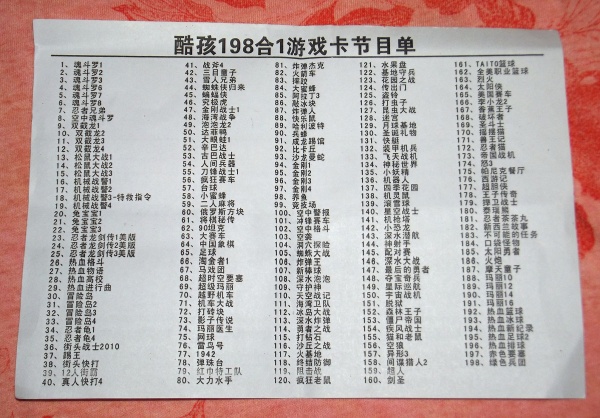 酷孩198合1游戏卡节目单
1、魂斗罗1
2、魂斗罗2
3、魂斗罗3
4、魂斗罗5
5、魂斗罗6
6、魂斗罗7
7、魂斗罗8
8、空中魂斗罗
9、双截龙1
10、双截龙2
11、双截龙3
12、双截龙4
13、松鼠大战1
14、松鼠大战2
15、松鼠大战3
16、机械战警1
17、机械战警2
18、机械战警3-特救指令
19、机械战警4
20、兔宝宝1
21、兔宝宝2
22、兔宝宝3
23、忍者龙剑传1美版
24、忍者龙剑传2美版
25、忍者龙剑传3美版
26、热血格斗
27、热血物语
28、热血高校
29、热血进行曲
30、冒险岛
31、冒险岛2
32、冒险岛3
33、冒险岛4
34、忍者龟1
35、忍者龟4
36、街头战士2010
37、踢王
38、街头快打
39、12人街霸
40、真人快打4
41、战斧4
42、三目童子
43、雪人兄弟
44、蜘蛛侠归来
45、蝙蝠侠
46、究极虎
47、金刚战士1
48、海湾战争
49、泡泡龙2
50、达菲鸭
51、大眼蛙1
52、辛巴达
53、古巴战士
54、人间兵器
55、刀锋战士1
56、疯狂赛车
57、台球
58、小蜜蜂
59、二人麻将
60、俄罗斯方块
61、将棋秘传
62、90坦克
63、大赛车
64、中国象棋
65、足球
66、海金者1
67、马戏团
68、超时空要塞
69、超级玛丽
70、越野机车
71、机车大战
72、打砖块
73、影子传说
74、玛丽医生
75、网球
76、雷鸟号
77、1942
78、弹珠台
79、红巾特工队
80、大力水手
81、炸弹杰克
82、火箭车
83、摔跤
84、大蜜蜂
85、阿拉丁3
86、敲冰块
87、炸弹人
88、快乐鼠
89、哈利波特
90、兵蜂
91、成龙踢馆
92、比卡丘
93、沙龙曼蛇
94、金刚1
95、金刚2
96、金刚3
97、金刚4
98、养鱼
99、竞技场
100、空中警报
101、冲锋赛车
102、空中格斗
103、空袭
104、洞穴探险
105、蜘蛛大战
106、炸弹王
107、新棒球
108、深水泡泡
109、守护神
110、天海空战记
111、海湾卫队
112、冰岛大战
113、深水炸弹
114、勇者之战
115、打钻石
116、沙丘之战
117、火基地
118、终结防御
119、阻击战
120、疯狂老鼠
121、水果盘
122、基地守兵
123、花园之战
124、传出门
125、盗铃
126、打虫子
127、昆虫大战
128、迷宫
129、月球基地
130、圣诞礼物
131、快艇
132、装甲机兵
133、飞天战机
134、神秘世界
135、小妖精
136、机器人
137、四季花园
138、机灵鼠
139、滚雪球
140、星空战士
141、神枪手
142、小恐龙
143、深水潜航
144、神射手
145、配对赛
146、深水大战
147、最后的勇者
148、夺宝奇兵
149、星际巡航
150、宇宙战机
151、脱狱
152、森林王子
153、僵尸帝国
154、疾风战士
155、猫和老鼠
156、空狼
157、异形3
158、间谍猎人2
159、超人
160、剑圣
161、TAITO篮球
162、全美职业篮球
163、烈火
164、太阳侠
165、美国赛车
166、李小龙2
167、香蕉王子
168、破坏者
169、圣斗士
170、摇摆猫
171、教王
172、忍者猫
173、帝国战机
174、忍3
175、帕尼克餐厅
176、西游记
177、超胆侠
178、王子传奇
179、操卫战士
180、泰瑞瓷熊
181、忍者茶茶丸
182、新西兰故事
183、不可能的任务
184、口袋怪物
185、太阳勇者
186、火炮
187、摩天童子
188、玛丽10
189、玛丽14
190、玛丽16
191、玛丽12
192、热血冰球
193、热血排球
194、热血新纪录
195、热血足球2
196、热血排球
197、赤色要塞
198、绿色兵团